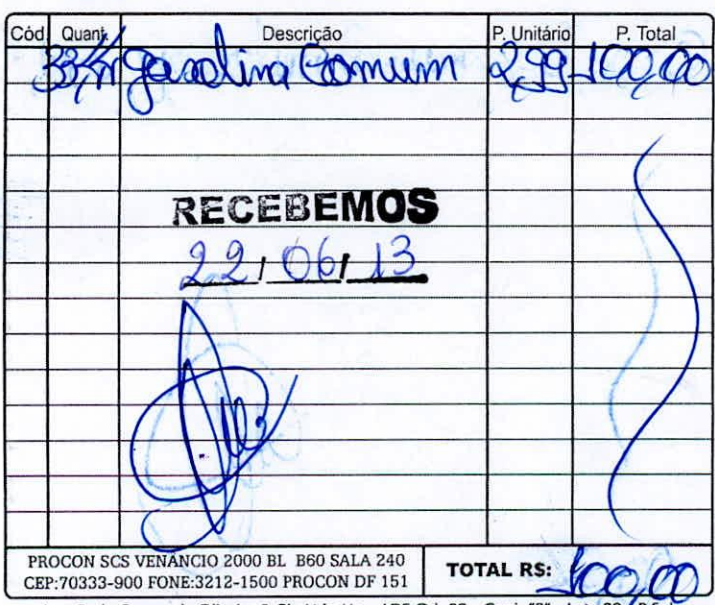 Cód. Quant. Descrição P. Unitário P. Total
gasolina Comum 2,99 100,00
RECEBEMOS
22/06/13
PROCON SCS VENÂNCIO 2000 BL B60 SALA 240
CEP:70333-900 FONE:3212-1500 PROCON DF 151
TOTAL RS: 100,00